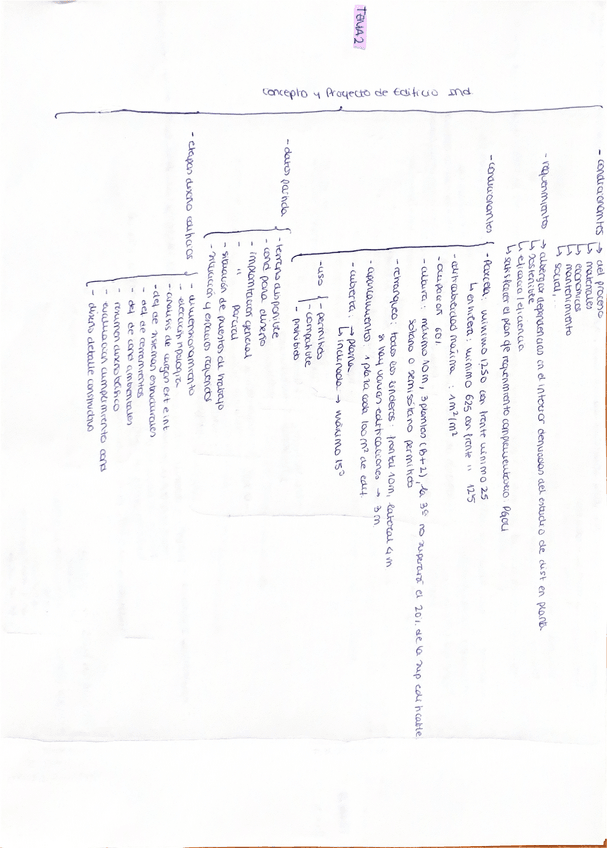 TEMA 2
Concepto y Proyecto de Edificio Ind.
- condicionantes → del proceso
↳ materiales
↳ económicos
↳ mantenimiento
↳ social, ..
- requerimientos → albergar dependencias en el interior derivadas del estudio de dist en planta
↳ sostenible
↳ eficacia / eficiencia
↳ satisfacer el plan de requerimiento complementario PGOU
- condicionantes
- Parcela: mínimo 1250 con frente mínimo 25
↳ entilera: mínimo 625 con frente " 12'5
- edificabilidad máxima : 1 m²/m²
- ocupación 60%
- altura: máximo 10m, 3 plantas (B+2), la 3º no superará el 20% de la sup edificable
sótano o semisótano permitido
- retranqueo: todos los linderos · frontal 10m, lateral 4m
si hay varias edificaciones → 3m
- aparcamientos 1 plaza cada 100 m² de edif.
- cubierta: → plana
↳ inclinada → máximo 15º
- uso - permitidos
- compatible
- prohibidos
- datos partida - terreno disponible
- cond para diseño
- implantación general
- " parcial
- situación de puestos de trabajo
- situación y espacios requeridos
- etapas diseño edificios - dimensionamiento
- elección tipología
- análisis de imagen ext e int
- def de sistemas estructurales
- def de cerramientos
- def de cond ambientales
- resumen diseño básico
- evaluación cumplimiento cond
- diseño detalle constructivo